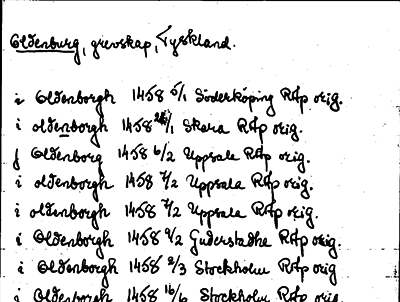 Oldenburg, grevskap, Tyskland.
i Oldenborgh 1458 5/1 Söderköping RAp orig.
i oldenborgh 1458 /1 Skara RAp orig.
f Oldenborg 1458 6/2 Uppsala RAp orig.
i oldenborgh 1458 7/2 Uppsala RAp orig.
i oldenborgh 1458 7/2 Uppsala RAp orig.
i Oldenborgh 1458 9/2 RAp orig.
i Oldenborgh 1458 2/3 Stockholm RAp orig
i Oldenborgh 1458 16/ Stockholm RAp orig